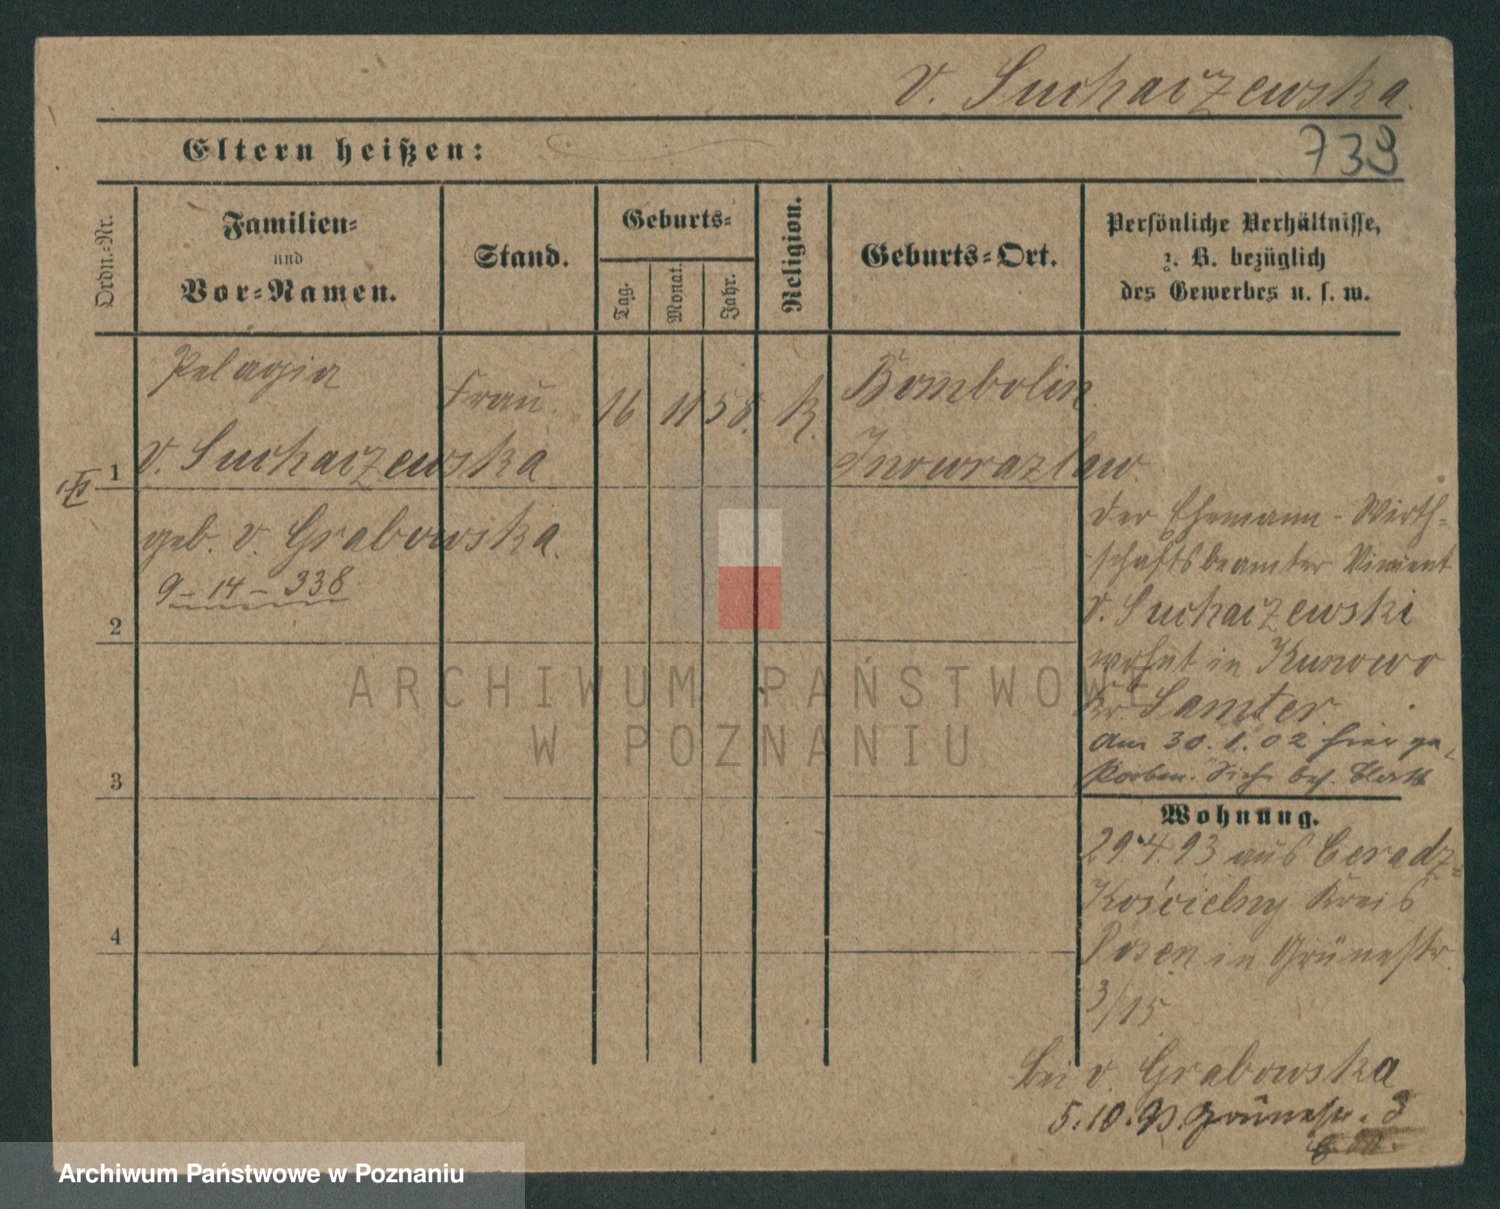 v. Suchaczewska.
Eltern heißen:
739
Ordn.-Nr.
Familien-
und
Vor-Namen.
Stand.
Geburts-
Tag.
Monat.
Jahr.
Religion.
Geburts-Ort.
Persönliche Verhältnisse,
z. B. bezüglich
des Gewerbes u. s. w.
Pelagia
Frau.
16
11
58.
k.
Bombolin
1
v. Suchaczewska
Inowrazlaw.
geb. v. Grabowska.
9 - 14 - 338.
2
3
4
der Ehemann - Wirth-
schaftsbeamter Vincent
v. Suchaczewski
wohnt in Kunowo
Kr. Samter.
Am 30. 1. 02 hier ge-
storben. Siehe bes. Blatt
Wohnung.
29.4.93 aus Ceradz-
Kościelny Kreis
Posen in Grünestr.
3/15.
bei v. Grabowska
5.10.93. Grünestr. 3
ARCHIWUM PAŃSTWOWE
W POZNANIU
Archiwum Państwowe w Poznaniu